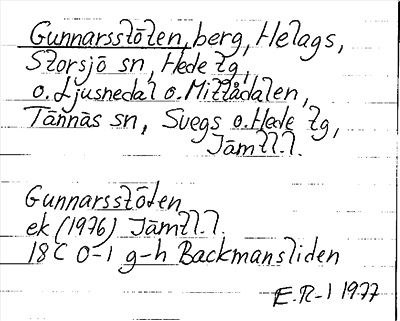 Gunnarsstöten, berg, Helags,
Storsjö sn, Hede tg,
o. Ljusnedal o. Mittådalen,
Tännäs sn, Svegs o. Hede tg,
Jämtl. l.
Gunnarsstöten
ek (1976) Jämtl. l.
18 C 0-1 g-h Backmansliden
E.R-l 1977